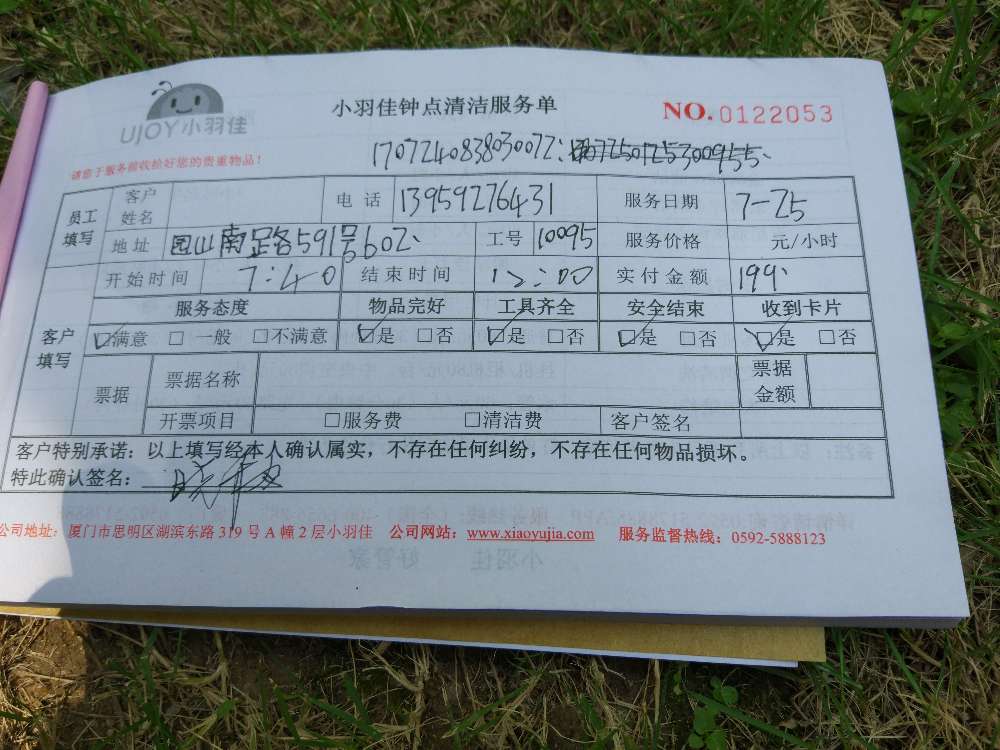 UJOY小羽佳
小羽佳钟点清洁服务单
NO.0122053
请您于服务前收拾好您的贵重物品！
员工填写 客户姓名 电话 13959276431 服务日期 7-25
地址 园山南路591号602 工号 10095 服务价格 元/小时
客户填写 开始时间 7:40 结束时间 12:00 实付金额 199
服务态度 物品完好 工具齐全 安全结束 收到卡片
☑满意 □一般 □不满意 ☑是 □否 ☑是 □否 ☑是 □否 ☑是 □否
票据 票据名称 票据金额
开票项目 □服务费 □清洁费 客户签名
客户特别承诺：以上填写经本人确认属实，不存在任何纠纷，不存在任何物品损坏。
特此确认签名：
公司地址：厦门市思明区湖滨东路 319 号 A 幢 2 层小羽佳 公司网站：www.xiaoyujia.com 服务监督热线：0592-5888123